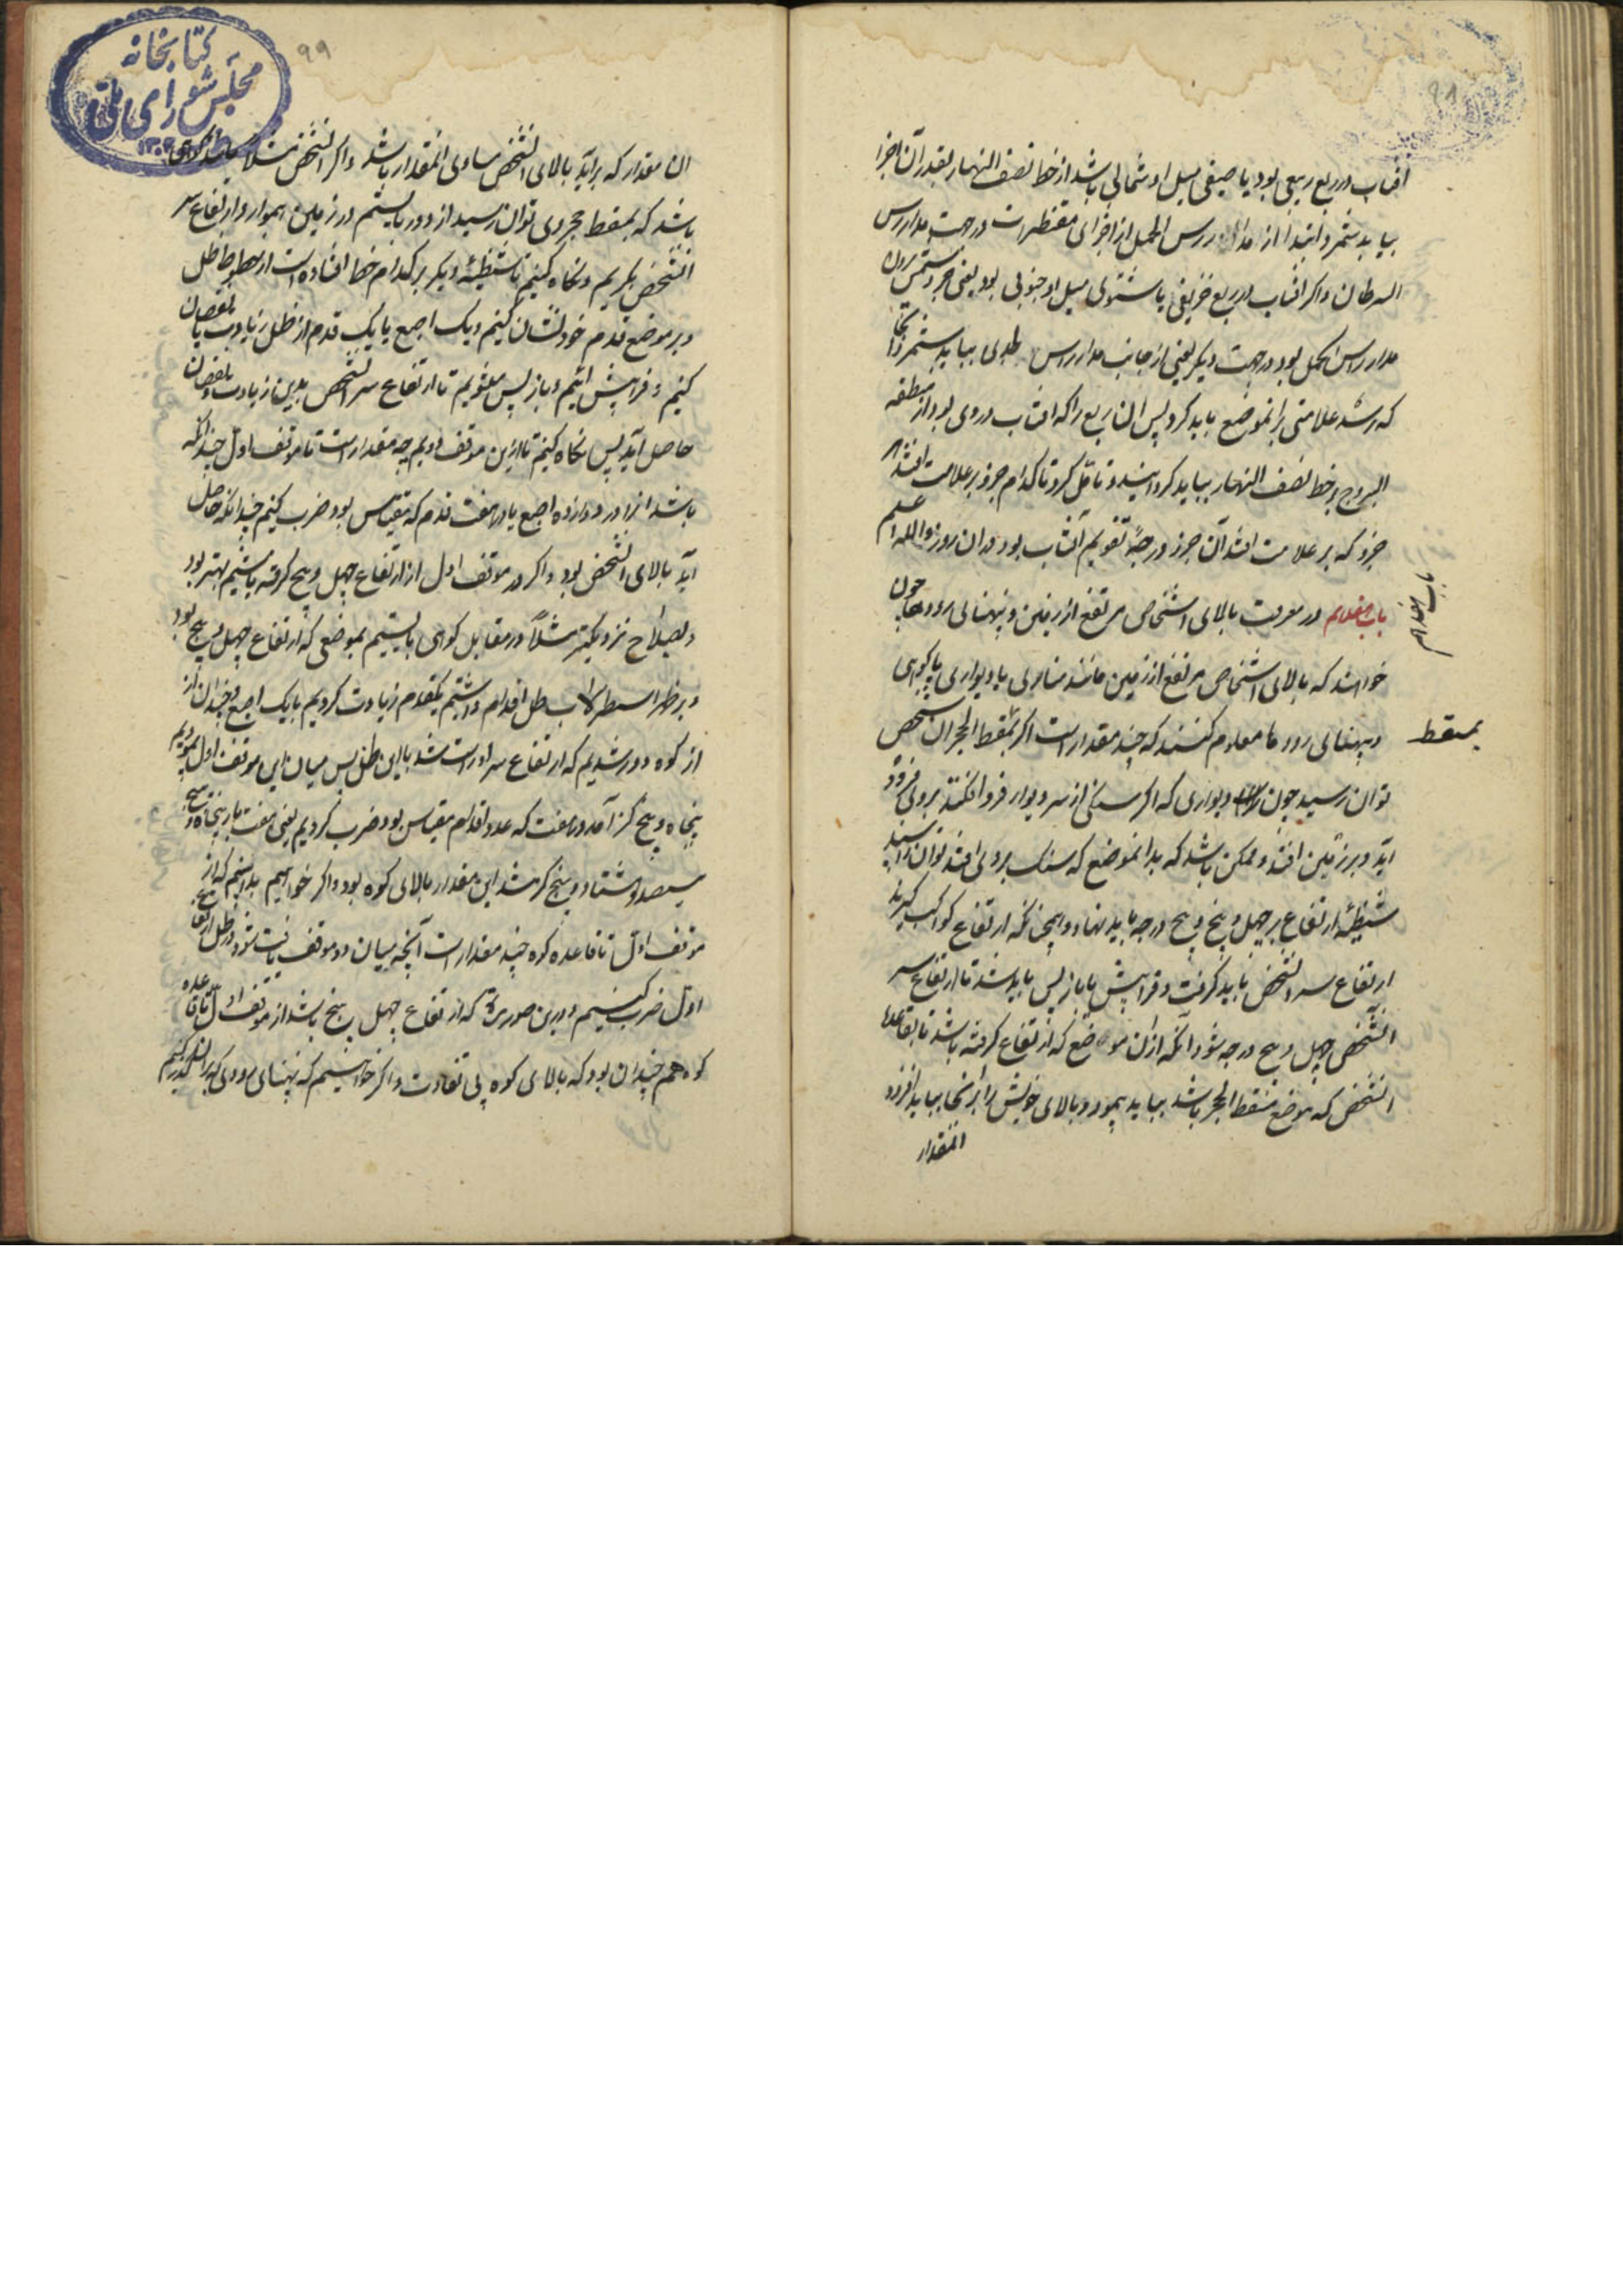 افتاب در ربع ربیعی بود یا صیفی میل او شمالی باشد از خط نصف النهار بقدر آن اجزا
بباید شمرد و ابتدا از مدار راس الحمل از اجزای مقنطرات در جهت مدار راس
السرطان و اکر افتاب در ربع خریفی یا شتوی میل او جنوبی بود یعنی
مدار راس الحمل بود در جهت دیکر یعنی از جانب مدار راس بباید شمرد
که رسد علامتی بر انموضع باید کرد پس ان ربع را که افتاب در وی بود از منطقه
البروج بر خط نصف النهار بباید کردانید و تامل کرد تا کدام جزو بر علامت افتد
جزو که بر علامت افتد آن جزو درجه تقویم آفتاب بود در ان روز والله اعلم
باب هفدهم در معرفت بالای اشخاص مرتفع از زمین و پهنای رودها چون
باب هفدهم
خواهند که بالای اشخاص مرتفع از زمین مانند مناره یا دیواری یا کوهی
و پهنای رودها معلوم کنند که چند مقدار است اکر بمسقط الحجر ان شخص
بمسقط
توان رسید چون دیواری که اکر سنکی از سر دیوار فرو افکنند بروی فرود
اید و بر زمین افتد و ممکن باشد که بدانموضع که سنک بروی افتد توان رسید
شظیهٔ ارتفاع بر چهل و پنج درجه باید نهاد و همچنانکه ارتفاع کواکب کیرند
ارتفاع سر انشخص باید کرفت و فرا پیش یا باز پس باید شد تا ارتفاع سر
انشخص چهل و پنج درجه شود آنکه ازان موضع که ارتفاع کرفته باشد تا بقاعده
انشخص که موضع مسقط الحجر باشد بباید پیمود و بالای خویش را بر انجا بباید افزود
المقدار
کتابخانه
مجلس شورای ملی
۹۹
ان مقدار که براید بالای انشخص مساوی انمقدار باشد و اکر انشخص مثلا
باشد که بمسقط حجر وی توان رسید از دور بایستیم در زمین هموار و ارتفاع سر
انشخص بکیریم و نکاه کنیم تا شظیهٔ دیکر بر کدام خط افتاده است از خطوط ظل
و بر موضع قدم خود نشان کنیم و یک اصبع یا یک قدم از ظل زیادت یا نقصان
کنیم و فرا پیش ائیم و باز پس میشویم تا ارتفاع سر انشخص بدین زیادت و نقصان
حاصل آید پس نکاه کنیم تا ازین موقف دویم چه مقدار است تا موقف اول چندانکه
باشد انرا در دوازده اصبع یا در هفت قدم که مقیاس بود ضرب کنیم چندانکه حاصل
آید بالای انشخص بود و اکر در موقف اول از ارتفاع چهل و پنج کرفته باشیم بهتر بود
و بصلاح نزدیکتر مثلا در مقابل کوهی بایستیم بموضعی که ارتفاع چهل و پنج بود
و بر ظهر اسطرلاب ظل اقدام داشتیم یکقدم زیادت کردیم یا یک اصبع و چندان از
از کوه دور شدیم که ارتفاع سر او راست شد با این ظل پس میان این موقف و اول پیمودیم
پنجاه و پنج کز آمد در هفت که عدد اقدام مقیاس بود ضرب کردیم یعنی هفت بار پنجاه و پنج
سیصد و هشتاد و پنج کز شد این مقدار بالای کوه بود و اکر خواهیم بدانیم که از
موقف اول تا قاعده کوه چند مقدار است آنچه میان دو موقف یافت شود در ظل ارتفاع
اول ضرب کنیم و درین صورت که ارتفاع چهل و پنج باشد از موقف اول تا قاعده
کوه هم چندان بود که بالای کوه بی تفاوت و اکر خواهیم که پهنای رودی